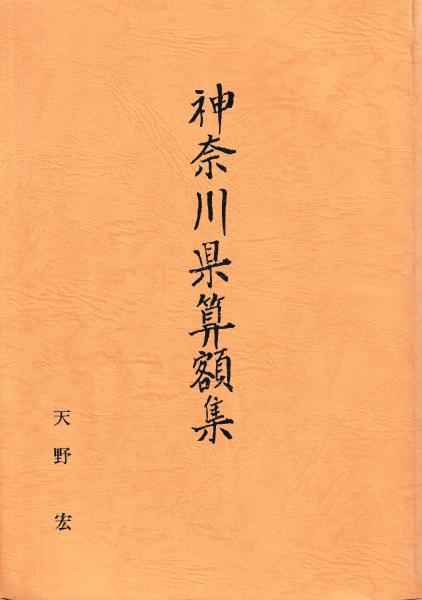 神奈川県算額集
天野宏